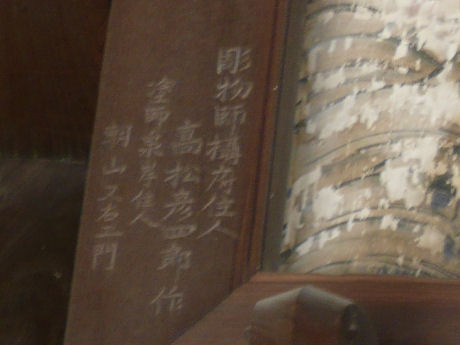 彫物師構府住人
高松彦四郎 作
塗師泉岸住人
朝山又右エ門